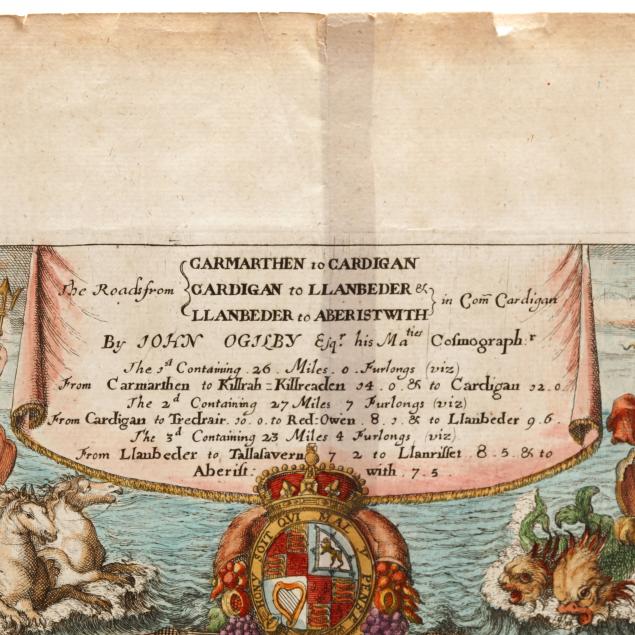 The Roads from
CARMARTHEN to CARDIGAN
CARDIGAN to LLANBEDER &
LLANBEDER to ABERISTWITH
in Com Cardigan
By IOHN OGILBY Esqr. his Maties Cosmographr.
The 1st Containing 26 Miles 0 Furlongs (viz)
From Carmarthen to Killrah-Killreaden 14.0. & to Cardigan 12.0.
The 2d Containing 27 Miles 7 Furlongs (viz)
From Cardigan to Tredrair 10.0. to Red-Owen 8.1. & to Llanbeder 9.6.
The 3d Containing 23 Miles 4 Furlongs (viz)
From Llanbeder to Tallasavern 7 2 to Llanrisset 8.5. & to
Aberist: with 7.5
HONY SOIT QUI MAL Y PENSE